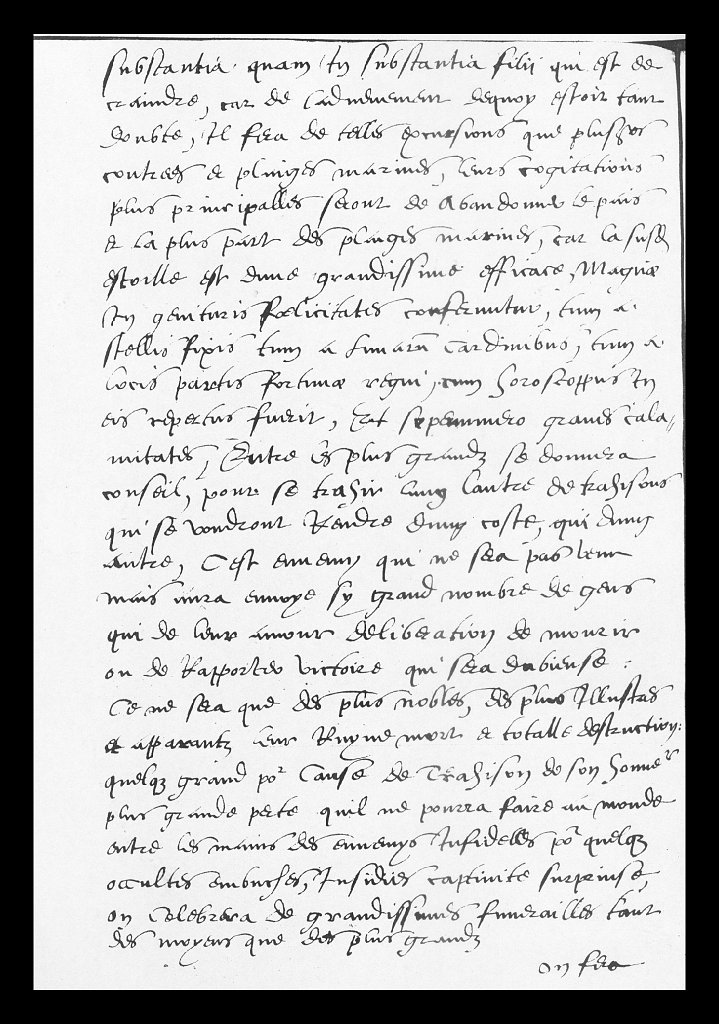 substantia quam in substantia filii qui est de
craindre, car de l'aduenement dequoy estoit tant
doubte, Il fera de telles excursions que plusrs
contrees et plaiges marines, leurs cogitations
plus principalles seront de abandonner le pais
et la plus part des plaiges marines, car la susd
estoille est dune grandissime efficace, Magnæ
In genituris fœlicitates conferuntur, tum a
stellis fixis tum a lunarū Cardinibus, tum a
locis partis fortunæ regni, cum horoscoppus in
eis repertus fuerit, grandes cala-
mitates, Entre les plus grandz se donnera
conseil, pour se trahir lung lautre de trahisons
qui se voudront Rendre dung coste, qui dung
autre, C'est ennemy qui ne sera pas leur
mais aura enuoye sy grand nombre de gens
qui de leur amour deliberation de mourir
ou de Rapporter victoire qui sera dubieuse :
Ce ne sera que des plus nobles, des plus Illustres
et apparantz leur Ruyne mort et totalle destruction:
quelqz grand por Cause de Trahison de son honner
plus grande perte quil ne pourra faire au monde
entre les mains des ennemys Infidelles por quelqz
occultes embuches, Insidies captiuite surprinse,
on Celebrera de grandissimes funerailles tant
des moyens que des plus grandz
on fera